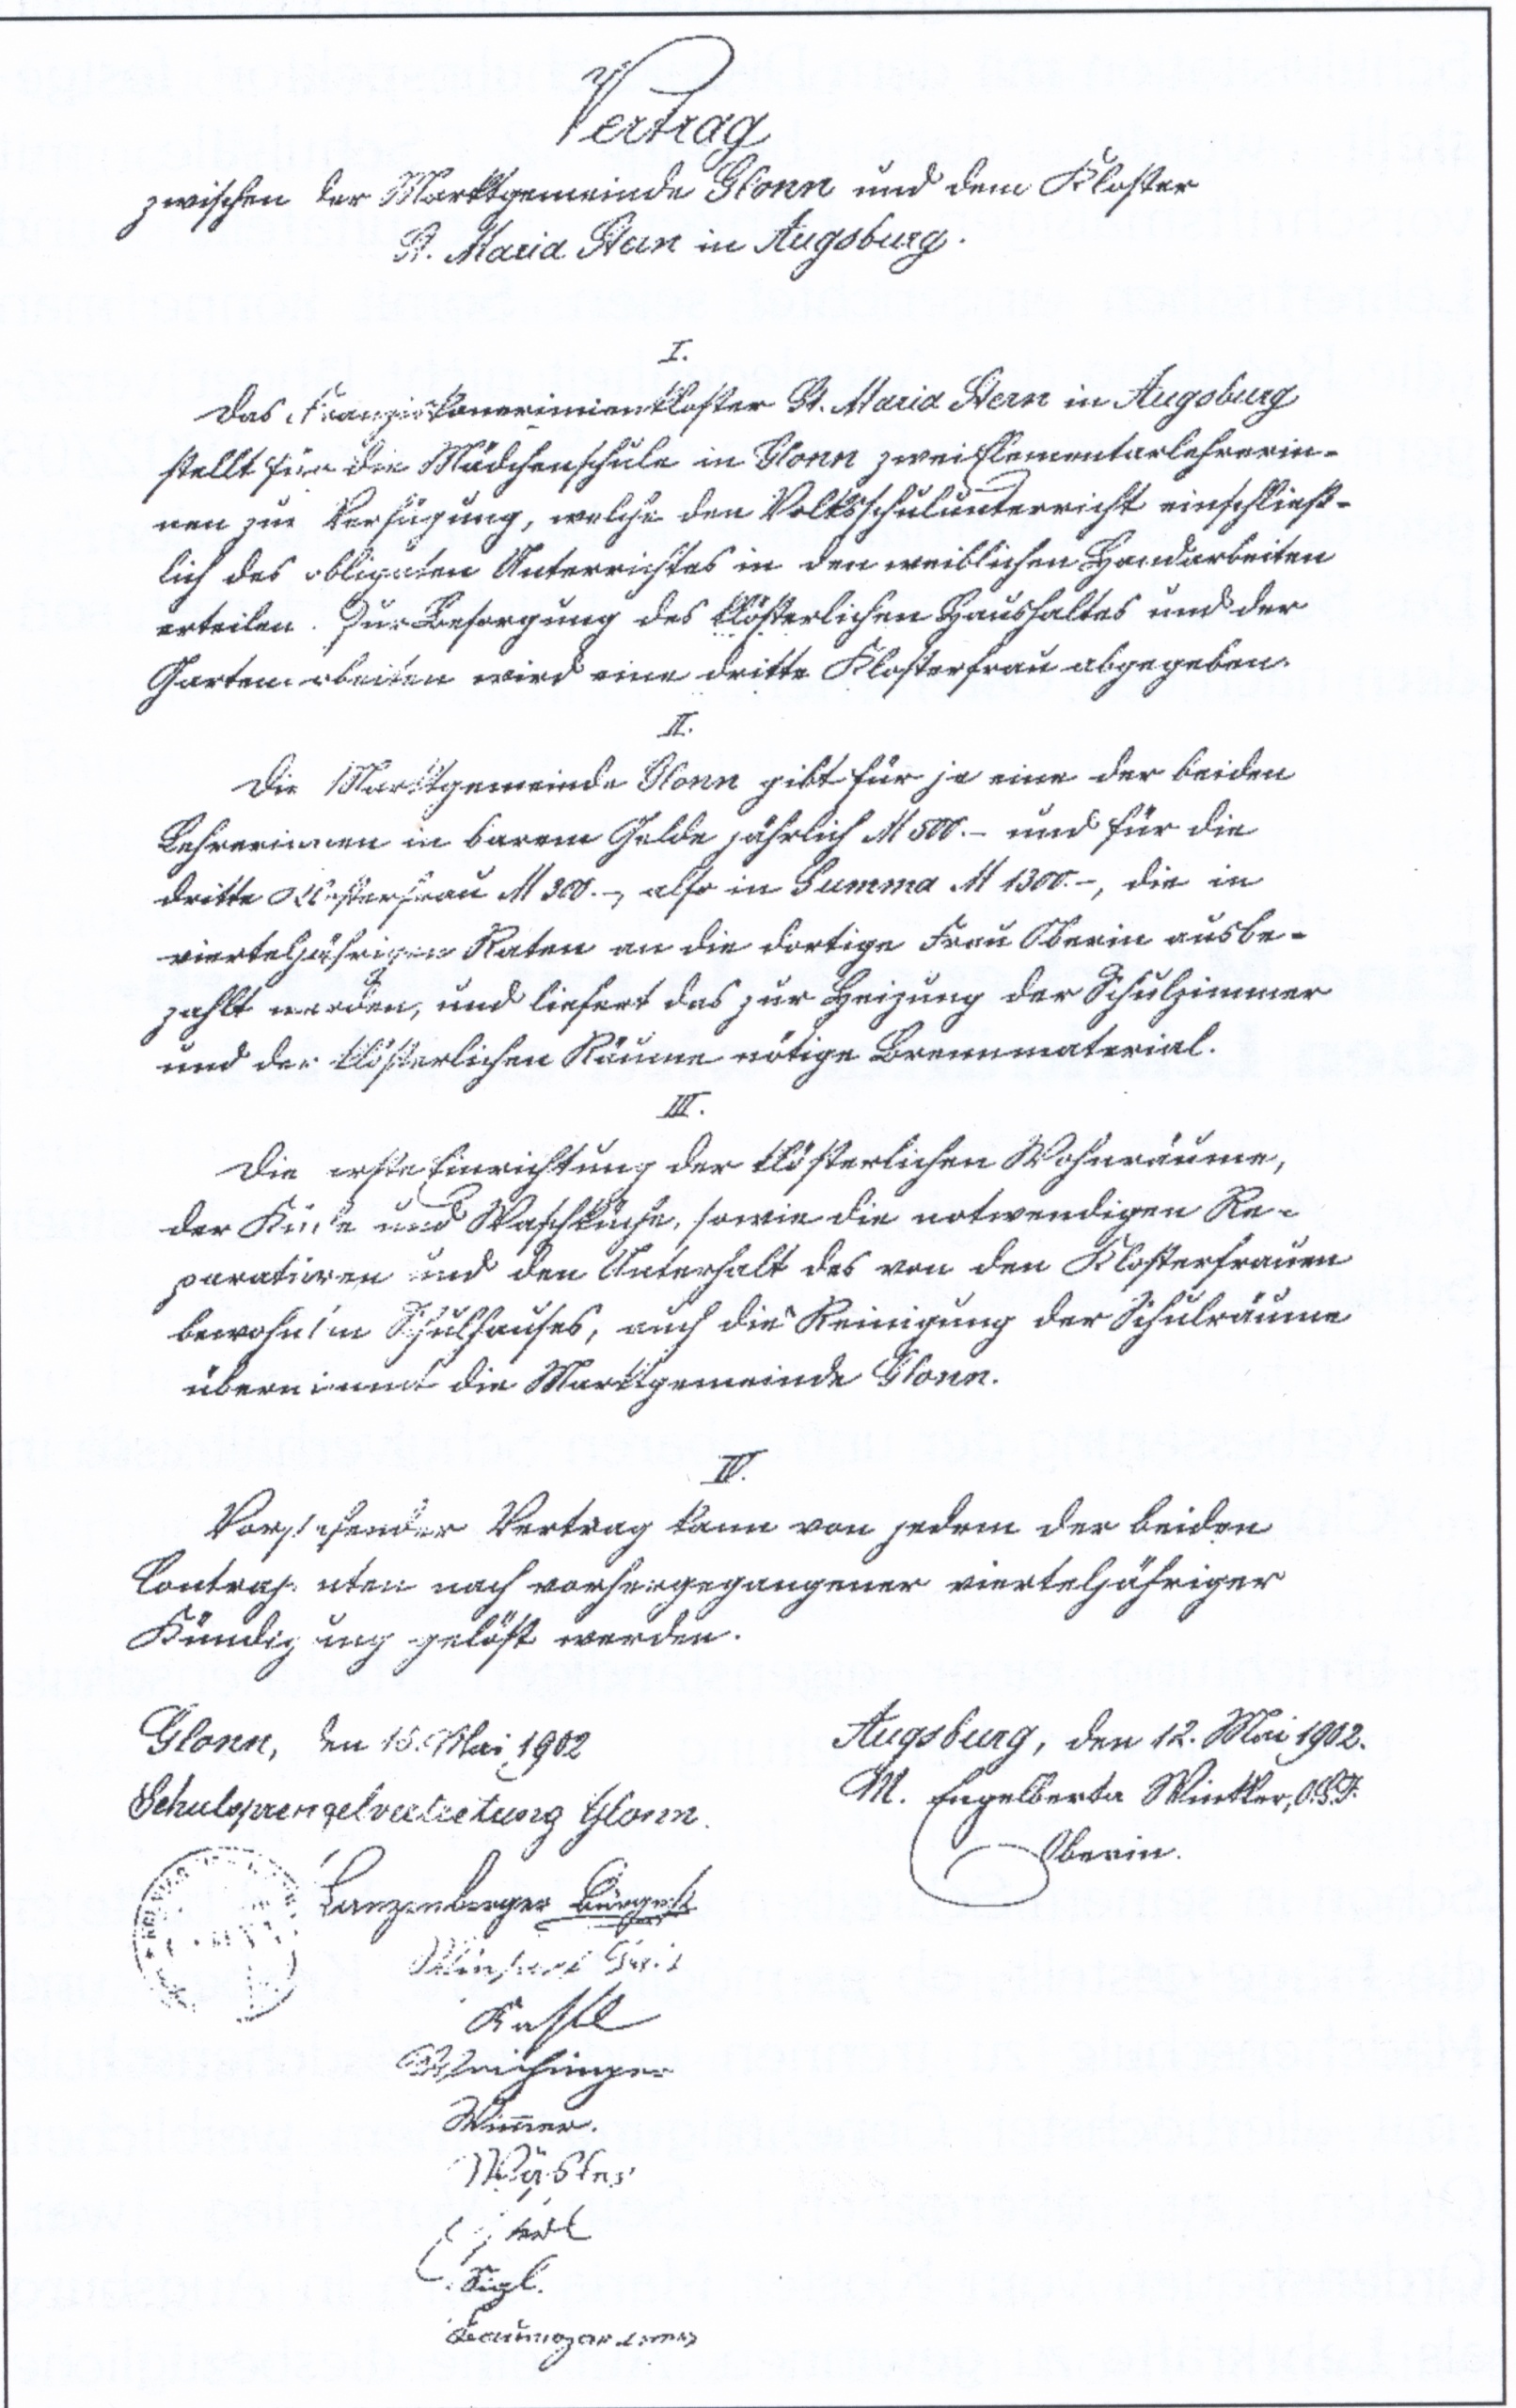 Vertrag
zwischen der Marktgemeinde Glonn und dem Kloster
St. Maria Stern in Augsburg.
I.
Das Franziskanerinnenkloster St. Maria Stern in Augsburg
stellt für die Mädchenschule in Glonn zwei Elementarlehrerin-
nen zur Verfügung, welche den Volksschulunterricht einschließ-
lich des obligaten Unterrichtes in den weiblichen Handarbeiten
erteilen. Zur Besorgung des klösterlichen Haushaltes und der
Gartenarbeiten wird eine dritte Klosterfrau abgegeben.
II.
Die Marktgemeinde Glonn gibt für je eine der beiden
Lehrerinnen in barem Gelde jährlich M 500.- und für die
dritte Klosterfrau M 300.-, also in Summa M 1300.-, die in
vierteljährigen Raten an die dortige Frau Oberin ausbe-
zahlt werden, und liefert das zur Heizung der Schulzimmer
und der klösterlichen Räume nötige Brennmaterial.
III.
Die erste Einrichtung der klösterlichen Wohnräume,
der Küche und Waschküche, sowie die notwendigen Re-
paraturen und den Unterhalt des von den Klosterfrauen
bewohnten Schulhauses, auch die Reinigung der Schulräume
übernimmt die Marktgemeinde Glonn.
IV.
Vorstehender Vertrag kann von jedem der beiden
Contrahenten nach vorhergegangener vierteljähriger
Kündigung gelöst werden.
Glonn, den 15. Mai 1902
Augsburg, den 12. Mai 1902.
Schulsprengelvertretung Glonn.
M. Engelberta Winkler, O.S.F.
Oberin.
Lanzenberger Bürgmstr
Kastl
Wimmer.
Sigl.